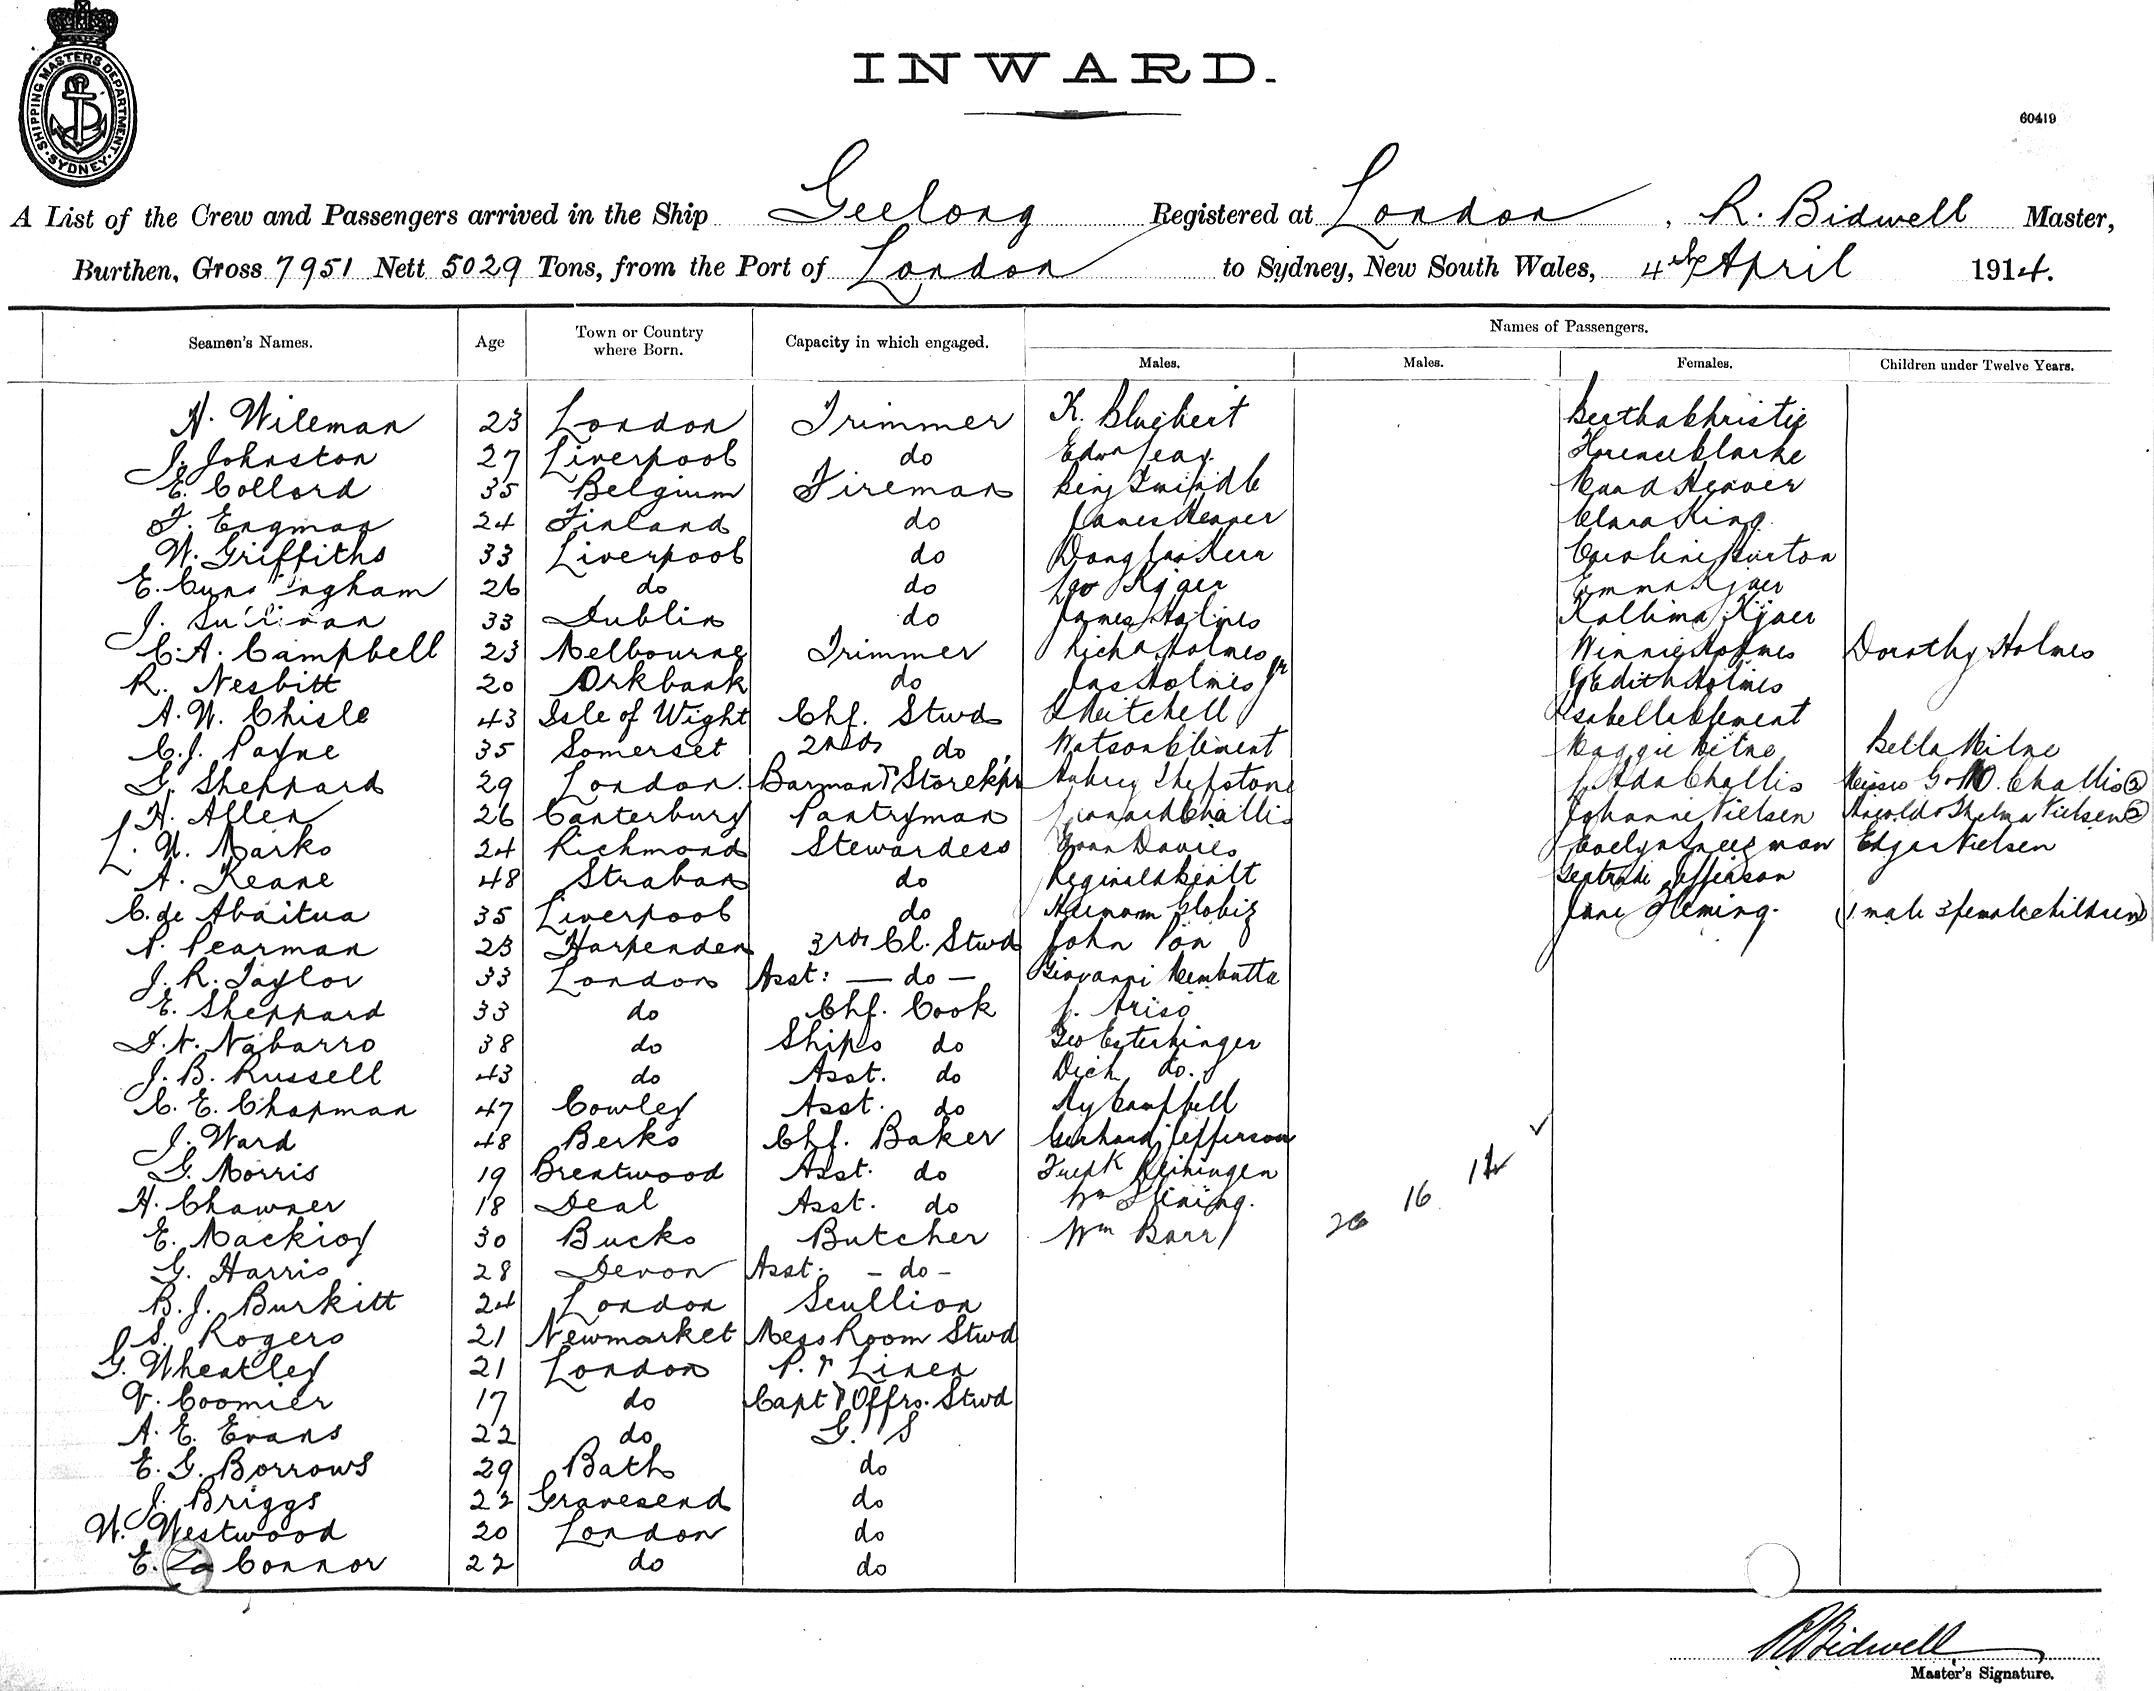 SHIPPING MASTERS DEPARTMENT SYDNEY
INWARD.
60419
A List of the Crew and Passengers arrived in the Ship Geelong Registered at London, R. Bidwell Master,
Burthen, Gross 7951 Nett 5029 Tons, from the Port of London to Sydney, New South Wales, 4th April 1914.
Names of Passengers.
Seamen's Names. Age Town or Country where Born. Capacity in which engaged. Males. Males. Females. Children under Twelve Years.
H. Wileman 23 London Trimmer K. Bertha Christie
J. Johnston 27 Liverpool do Edwn Florence Clarke
E. Collard 35 Belgium Fireman Benj Maud Heaver
F. Engman 24 Finland do James Heaver Clara King.
W. Griffiths 33 Liverpool do Douglas Kerr Caroline Burton
E. Cunningham 26 do do Kjaer Emma Kjaer
J. Sullivan 33 Dublin do James Holmes Kjaer
C. A. Campbell 23 Melbourne Trimmer Richd Holmes Winnie Holmes Dorothy Holmes
R. Nesbitt 20 Orkbank do Jas Holmes Jr Edith Holmes
A. W. Chisle 43 Isle of Wight Chf. Stwd Mitchell Isabella Clement
C. J. Payne 35 Somerset 2nd do Watson Clement Maggie Milne Bella Milne
G. Sheppard 29 London. Barman & Storekpr Aubrey Shepstone Ada Challis G. Challis 2
H. Allen 26 Canterbury Pantryman Challis Johanne Nielsen Thelma Nielsen 2
L. W. Marks 24 Richmond Stewardess Evan Davies Evelyn Edgar Nielsen
A. Keane 48 Straban do Reginald Gertrude Jefferson
C. de Abaitua 35 Liverpool do Hermann Globig Jane Fleming. (1 male 3 female children)
P. Pearman 23 Harpenden 3rd Cl. Stwd John Pon
J. R. Taylor 33 London Asst: — do — Giovanni
E. Sheppard 33 do Chf. Cook J. Ariso
I. N. Nabarro 38 do Ships do Geo Esterhinger
J. B. Russell 43 do Asst. do Dich do.
C. E. Chapman 47 Cowley Asst. do Campbell
J. Ward 48 Berks Chf. Baker Gerhard Jefferson
G. Morris 19 Brentwood Asst. do Fredk
H. Chawner 18 Deal Asst. do Wm Fleming. 16
E. Mackioy 30 Bucks Butcher Wm Barr
G. Harris 28 Devon Asst. - do -
B. J. Burkitt 24 London Scullion
S. Rogers 21 Newmarket Mess Room Stwd
G. Wheatley 21 London P. & Linen
V. Coomier 17 do Capt & Offrs. Stwd
A. E. Evans 22 do G. S
E. G. Borrows 29 Bath do
J. Briggs 22 Gravesend do
W. Westwood 20 London do
E. Connor 22 do do
R Bidwell
Master's Signature.